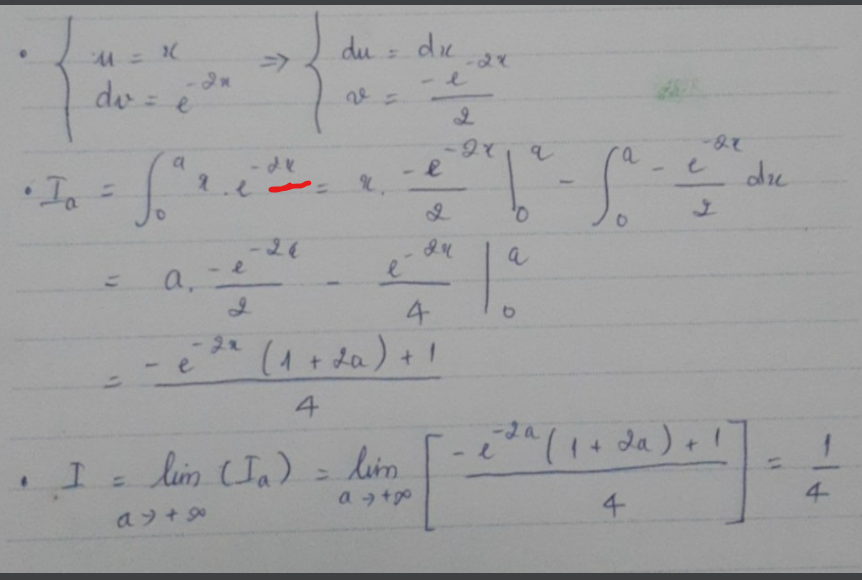 • { u = x ⇒ { du = dx
dv = e^{-2x} v = \frac{-e^{-2x}}{2}
• I_a = ∫_0^a x . e^{-2x} = x . \frac{-e^{-2x}}{2} |_0^a - ∫_0^a - \frac{e^{-2x}}{2} dx
= a . \frac{-e^{-2a}}{2} - \frac{e^{-2x}}{4} |_0^a
= \frac{-e^{-2x} (1 + 2a) + 1}{4}
• I = lim_{a → +∞} (I_a) = lim_{a → +∞} [ \frac{-e^{-2a} (1 + 2a) + 1}{4} ] = \frac{1}{4}